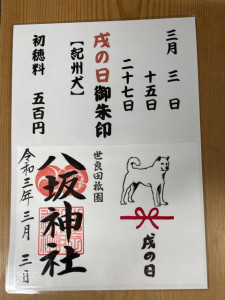 三月 三 日
十五日
二十七日
戌の日御朱印
【紀州犬】
初穂料 五百円
世良田祇園
八坂神社
令和三年 三月 三日
戌の日